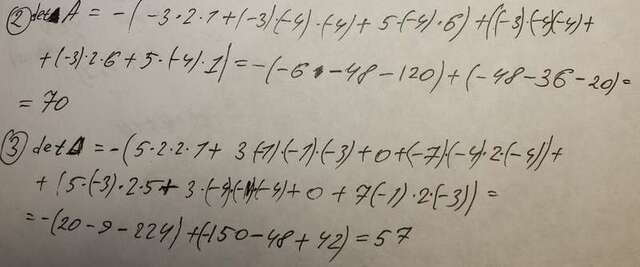 ② det A = -(-3·2·1+(-3)(-4)·(-4)+5·(-4)·6)+((-3)·(-4)(-4)+
+(-3)·2·6+5·(-4)·1)=-(-6-48-120)+(-48-36-20)=
= 70
③ det A = -(5·2·2·1+3(-1)(-1)·(-3)+0+(-7)·(-4)·2·(-4))+
+(5·(-3)·2·5+3·(-4)(-1)(-4)+0+7(-1)·2·(-3))=
=-(20-9-224)+(-150-48+42)=57